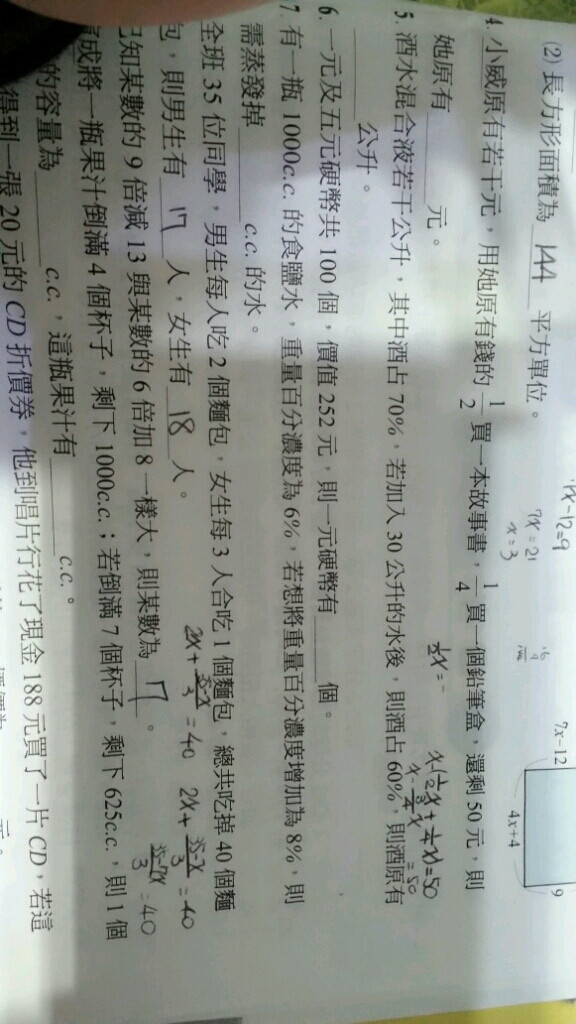 (2) 長方形面積為 144 平方單位。
7x-12=9
7x=21
x=3
7x-12
4x+4
9
4. 小威原有若干元，用她原有錢的 1/2 買一本故事書，1/4 買一個鉛筆盒，還剩 50 元，則
她原有 元。
5. 酒水混合液若干公升，其中酒占 70%，若加入 30 公升的水後，則酒占 60%，則酒原有
公升。
6. 一元及五元硬幣共 100 個，價值 252 元，則一元硬幣有 個。
7. 有一瓶 1000c.c. 的食鹽水，重量百分濃度為 6%，若想將重量百分濃度增加為 8%，則
需蒸發掉 c.c. 的水。
全班 35 位同學，男生每人吃 2 個麵包，女生每 3 人合吃 1 個麵包，總共吃掉 40 個麵
包，則男生有 17 人，女生有 18 人。
2x+35-x/3=40 2x+35-x/3=40
知某數的 9 倍減 13 與某數的 6 倍加 8 一樣大，則某數為 7 。
成將一瓶果汁倒滿 4 個杯子，剩下 1000c.c.；若倒滿 7 個杯子，剩下 625c.c.，則 1 個
的容量為 c.c.，這瓶果汁有 c.c.。
得到一張 20 元的 CD 折價券，他到唱片行花了現金 188 元買了一片 CD，若這